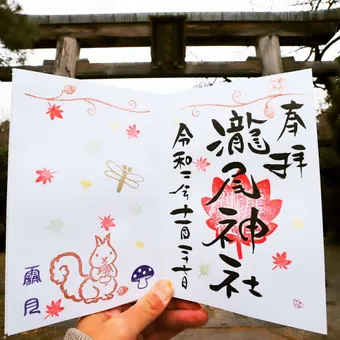 奉拝
瀧尾神社
令和二年十一月二十六日
霜月